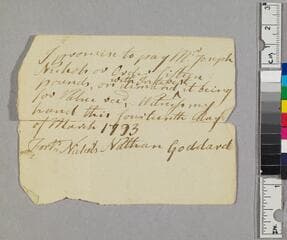 I promise to pay Mr. Joseph
Nichols or Order fifteen
with Interest
pounds, on demand it being
for Value recd. Witness my
hand this fourteenth day
of March 1793
Nathan Goddard